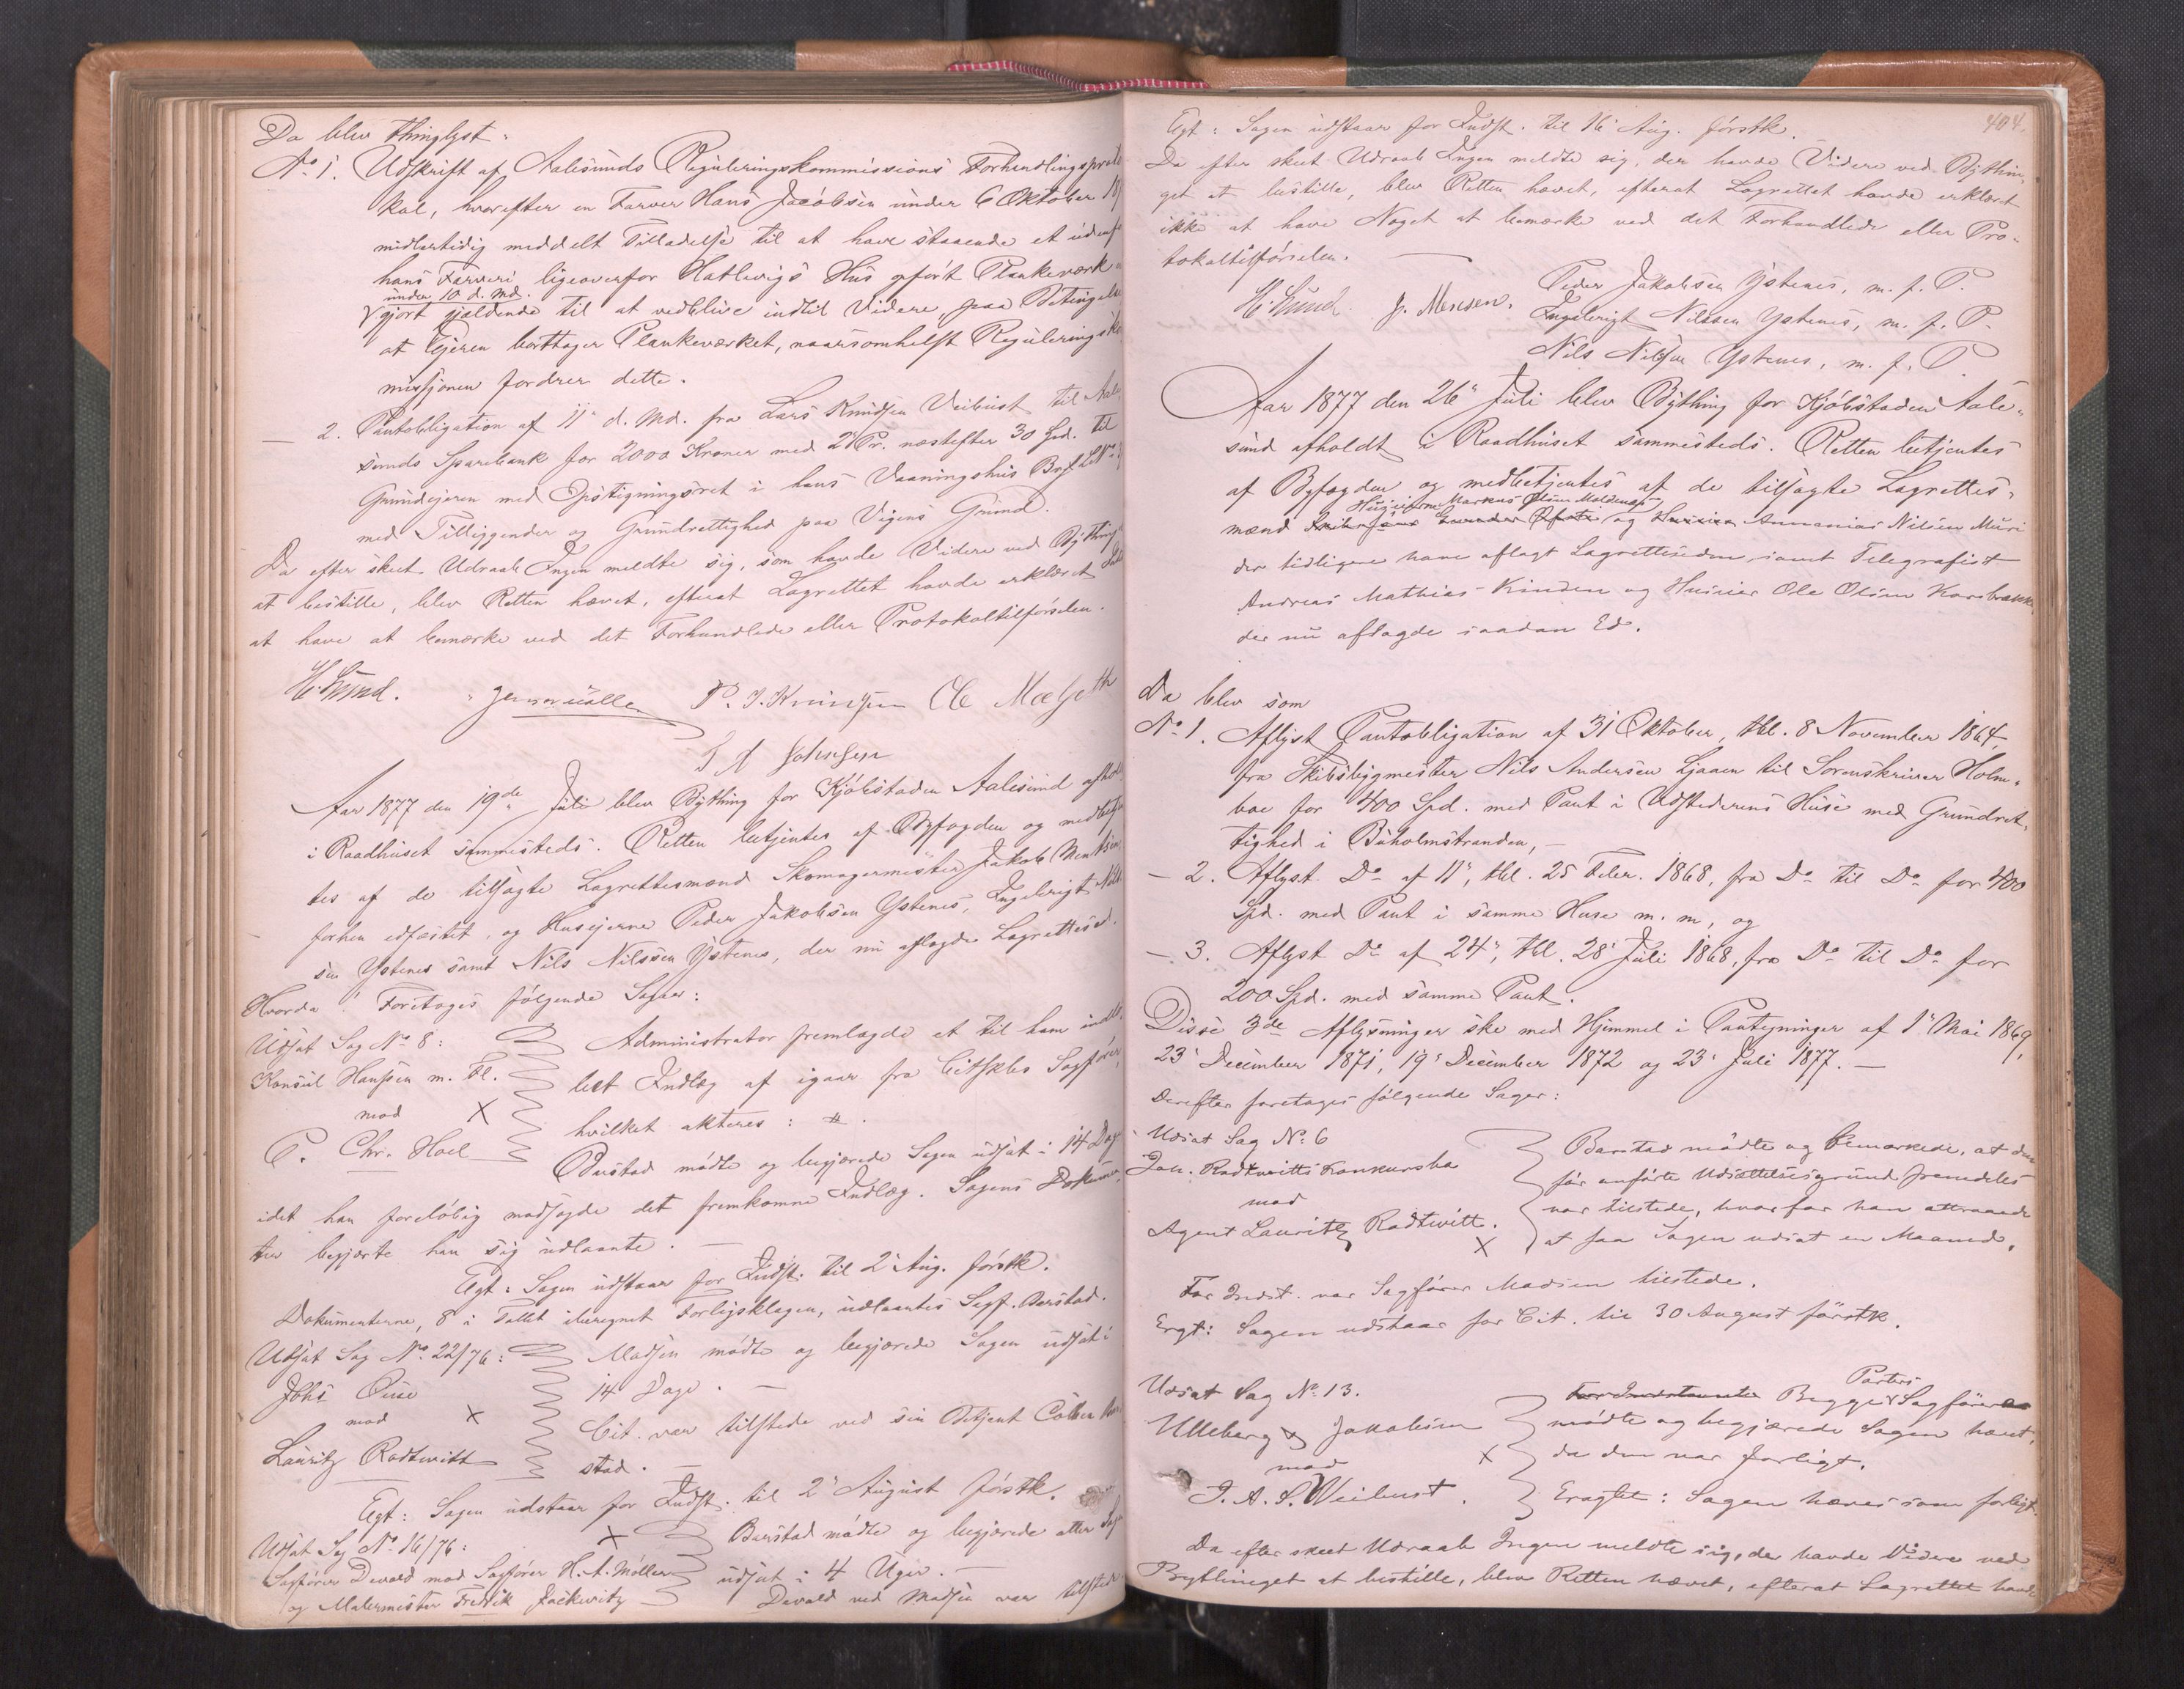 Da blev thinglyst:
No 1. Udskrift af Aalesunds Reguleringskommissions Forhandlingsproto
kol, hvorefter en Farver Hans Jacobsen under 6 Oktober
midlertidig meddelt Tilladelse til at have staaende et
hans Farveri ligeoverfor Hatlevigs Hus opført Plankeværk
under 10 d. Md.
gjort gjældende til at vedblive indtil Videre, paa Betingelse
at Ejeren borttager Plankeværket, naarsomhelst Regulerings
missjonen fordrer dette.
— 2. Pantobligation af 11" d. Md. fra Lars Knudsen Veibust til Aale
sunds Sparebank for 2000 Kroner med 2' Pr. næstefter 30 Spd. til
Grundejeren med Opsigtningsret i hans Vaaningshus
med Tilliggender og Grundrettighed paa Vigens Grund.
Da efter skeet Udraab Ingen meldte sig, som havde Videre ved Bything
at bestille, blev Retten hævet, efterat Lagrettet havde erklæret
at have at bemærke ved det Forhandlede eller Protokoltilførselen.
H. Lund. P. J. Knudsen Ole Mælseth
Johnsen
Aar 1877 den 19de Juli blev Bything for Kjøbstaden Aalesund afhol
i Raadhuset sammesteds. Retten betjentes af Byfogden og medbetjen
tes af de tilsagte Lagrettesmænd Skomagermester Jakob
forhen edfæstet, og Husejerne Peder Jakobsen Ystenes, Ingebrigt Nils
sen Ystenes samt Nils Nilssen Ystenes, der nu aflagde Lagrettesed.
Hvorda Foretoges følgende Sager:
Udsat Sag No 8: Administrator fremlagde et til ham indle
Konsul Hansen m. Fl. veret Indlæg af igaar fra Citskbs Sagfører
mod X hvilket akteres: #.
P. Chr. Hoel Barstad mødte og begjærede Sagen udsat i 14 Dage
idet han foreløbig modsagde det fremkomne Indlæg. Sagens Dokumen
ter begjærte han sig udlaante. —
Egt: Sagen udstaar for Indst. til 2' Aug. førstk.
Dokumenterne, 8 i Tallet iberegnet Forligsklagen, udlaantes Sagf. Barstad.
Udsat Sag No 22/76: Madsen mødte og begjærede Sagen udsat i
Johs Buse 14 Dage. —
mod X Cit. var tilstede ved sin Betjent
Lauritz Radtwitt stad. —
Egt: Sagen udstaar for Indst. til 2' August førstk.
Udsat Sag No 16/76: X Barstad mødte og begjærede atter Sagen
Sagfører Devold mod Sagfører H. A. Møller udsat i 4 Uger. —
og Malermester Fredrik Jackwitz Devold ved Madsen var tilstede
404.
Egt: Sagen udstaar for Indst. til 16' Aug. førstk.
Da efter skeet Udraab Ingen meldte sig, der havde Videre ved Bythin-
get at bestille, blev Retten hævet, efterat Lagrettet havde erklæret
ikke at have Noget at bemærke ved det Forhandlede eller Pro-
tokoltilførselen. —
H. Lund. J. Mensen. Peder Jakobsen Ystenes, m. f. P.
Ingebrigt Nilssen Ystenes, m. f. P.
Nils Nilssen Ystenes, m. f. P.
Aar 1877 den 26" Juli blev Bything for Kjøbstaden Aale-
sund afholdt i Raadhuset sammesteds. Retten betjentes
af Byfogden og medbetjentes af de tilsagte Lagrettes-
Husejerne Markus Olsen Moldenæs
mænd og Ananias Nilsen Muri
der tidligere have aflagt Lagretteseden, samt Telegrafist
Andreas Mathias Kinden og Huseier Ole Olsen Korsbrække
der nu aflagde saadan Ed.
Da blev som
No 1. Aflyst Pantobligation af 31 Oktober, thl. 8 November 1864,
fra Skibsbygmester Nils Andersen Ljaaen til Sorenskriver Holm-
boe for 400 Spd. med Pant i Udstederens Huse med Grundret-
tighed i Buholmstranden, —
— 2. Aflyst Do af 11", thl. 25 Febr. 1868, fra Do til Do for 400
Spd. med Pant i samme Huse m. m, og
— 3. Aflyst Do af 24", thl. 28' Juli 1868, fra Do til Do for
200 Spd. med samme Pant.
Disse 3de Aflysninger ske med Hjemmel i Pantegninger af 1" Mai 1869,
23' December 1871, 19' December 1872 og 23' Juli 1877. —
Derefter foretoges følgende Sager:
Udsat Sag No 6 Barstad mødte og bemærkede, at den
Joh. Radtwitts Konkursbo før anførte Udsættelsesgrund fremdeles
mod var tilstede, hvorfor han attraaede
Agent Lauritz Radtwitt. X at faa Sagen udsat en Maaned.
For Indst. var Sagfører Madsen tilstede.
Eragt: Sagen udstaar for Cit. til 30 August førstk.
Udsat Sag No 13. For Indstævnte Begge Parters Sagførere
Ulleberg & Jakobsen mødte og begjærede Sagen hævet,
mod X da den var forligt.
J. A. S. Weibust. Eragtet: Sagen hæves som forligt.
Da efter skeet Udraab Ingen meldte sig, der havde Videre ved
Bythinget at bestille, blev Retten hævet, efterat Lagrettet havde